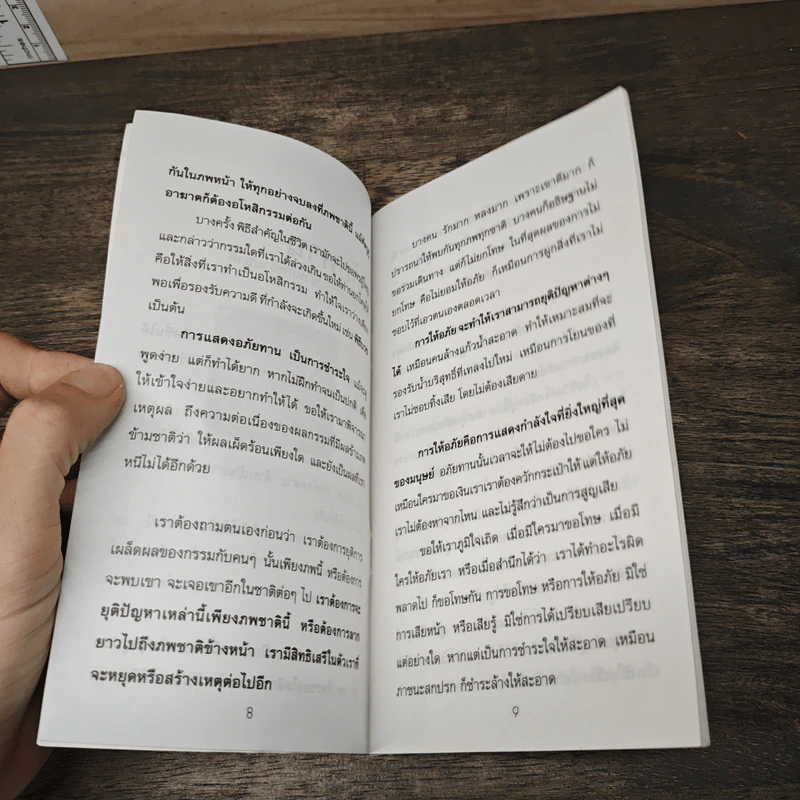 กันในภพหน้า ให้ทุกอย่างจบลงที่ภพชาตินี้
อาฆาตก็ต้องอโหสิกรรมต่อกัน
บางครั้ง พิธีสำคัญในชีวิต เรามักจะไปขอ
และกล่าวว่ากรรมใดที่เราได้ล่วงเกิน ขอให้ท่าน
คือให้สิ่งที่เราทำเป็นอโหสิกรรม ทำให้ใจเราว่าง
พอเพื่อรองรับความดี ที่กำลังจะเกิดขึ้นใหม่ เช่น
เป็นต้น
การแสดงอภัยทาน เป็นการชำระใจ
พูดง่าย แต่ก็ทำได้ยาก หากไม่ฝึกทำจนเป็นปกติ
ให้เข้าใจง่ายและอยากทำให้ได้ ขอให้เรามาพิจารณา
เหตุผล ถึงความต่อเนื่องของผลกรรมที่มีผลข้ามภพ
ข้ามชาติว่า ให้ผลเผ็ดร้อนเพียงใด และยังเป็นผลที่เรา
หนีไม่ได้อีกด้วย
เราต้องถามตนเองก่อนว่า เราต้องการยุติการ
เผล็ดผลของกรรมกับคนๆ นั้นเพียงภพนี้ หรือต้องการ
จะพบเขา จะเจอเขาอีกในชาติต่อๆ ไป เราต้องการจะ
ยุติปัญหาเหล่านี้เพียงภพชาตินี้ หรือต้องการลาก
ยาวไปถึงภพชาติข้างหน้า เรามีสิทธิเสรีในตัวเราที่
จะหยุดหรือสร้างเหตุต่อไปอีก
8
บางคน รักมาก หลงมาก เพราะเขาดีมาก ก็
ปรารถนาให้พบกันทุกภพทุกชาติ บางคนก็อธิษฐานไม่
ขอร่วมเดินทาง แต่ก็ไม่ยกโทษ ในที่สุดผลของการไม่
ยกโทษ คือไม่ยอมให้อภัย ก็เหมือนการผูกสิ่งที่เราไม่
ชอบไว้ที่เอวตนเองตลอดเวลา
การให้อภัย จะทำให้เราสามารถยุติปัญหาต่างๆ
ได้ เหมือนคนล้างแก้วน้ำสะอาด ทำให้เหมาะสมที่จะ
รองรับน้ำบริสุทธิ์ที่เทลงไปใหม่ เหมือนการโยนของที่
เราไม่ชอบทิ้งเสีย โดยไม่ต้องเสียดาย
การให้อภัยคือการแสดงกำลังใจที่ยิ่งใหญ่ที่สุด
ของมนุษย์ อภัยทานนั้นเวลาจะให้ไม่ต้องไปขอใคร ไม่
เหมือนใครมาขอเงินเราเราต้องควักกระเป๋าให้ แต่ให้อภัย
เราไม่ต้องหาจากไหน และไม่รู้สึกว่าเป็นการสูญเสีย
ขอให้เราภูมิใจเถิด เมื่อมีใครมาขอโทษ เมื่อมี
ใครให้อภัยเรา หรือเมื่อสำนึกได้ว่า เราได้ทำอะไรผิด
พลาดไป ก็ขอโทษกัน การขอโทษ หรือการให้อภัย มิใช่
การเสียหน้า หรือเสียรู้ มิใช่การได้เปรียบเสียเปรียบ
แต่อย่างใด หากแต่เป็นการชำระใจให้สะอาด เหมือน
ภาชนะสกปรก ก็ชำระล้างให้สะอาด
9